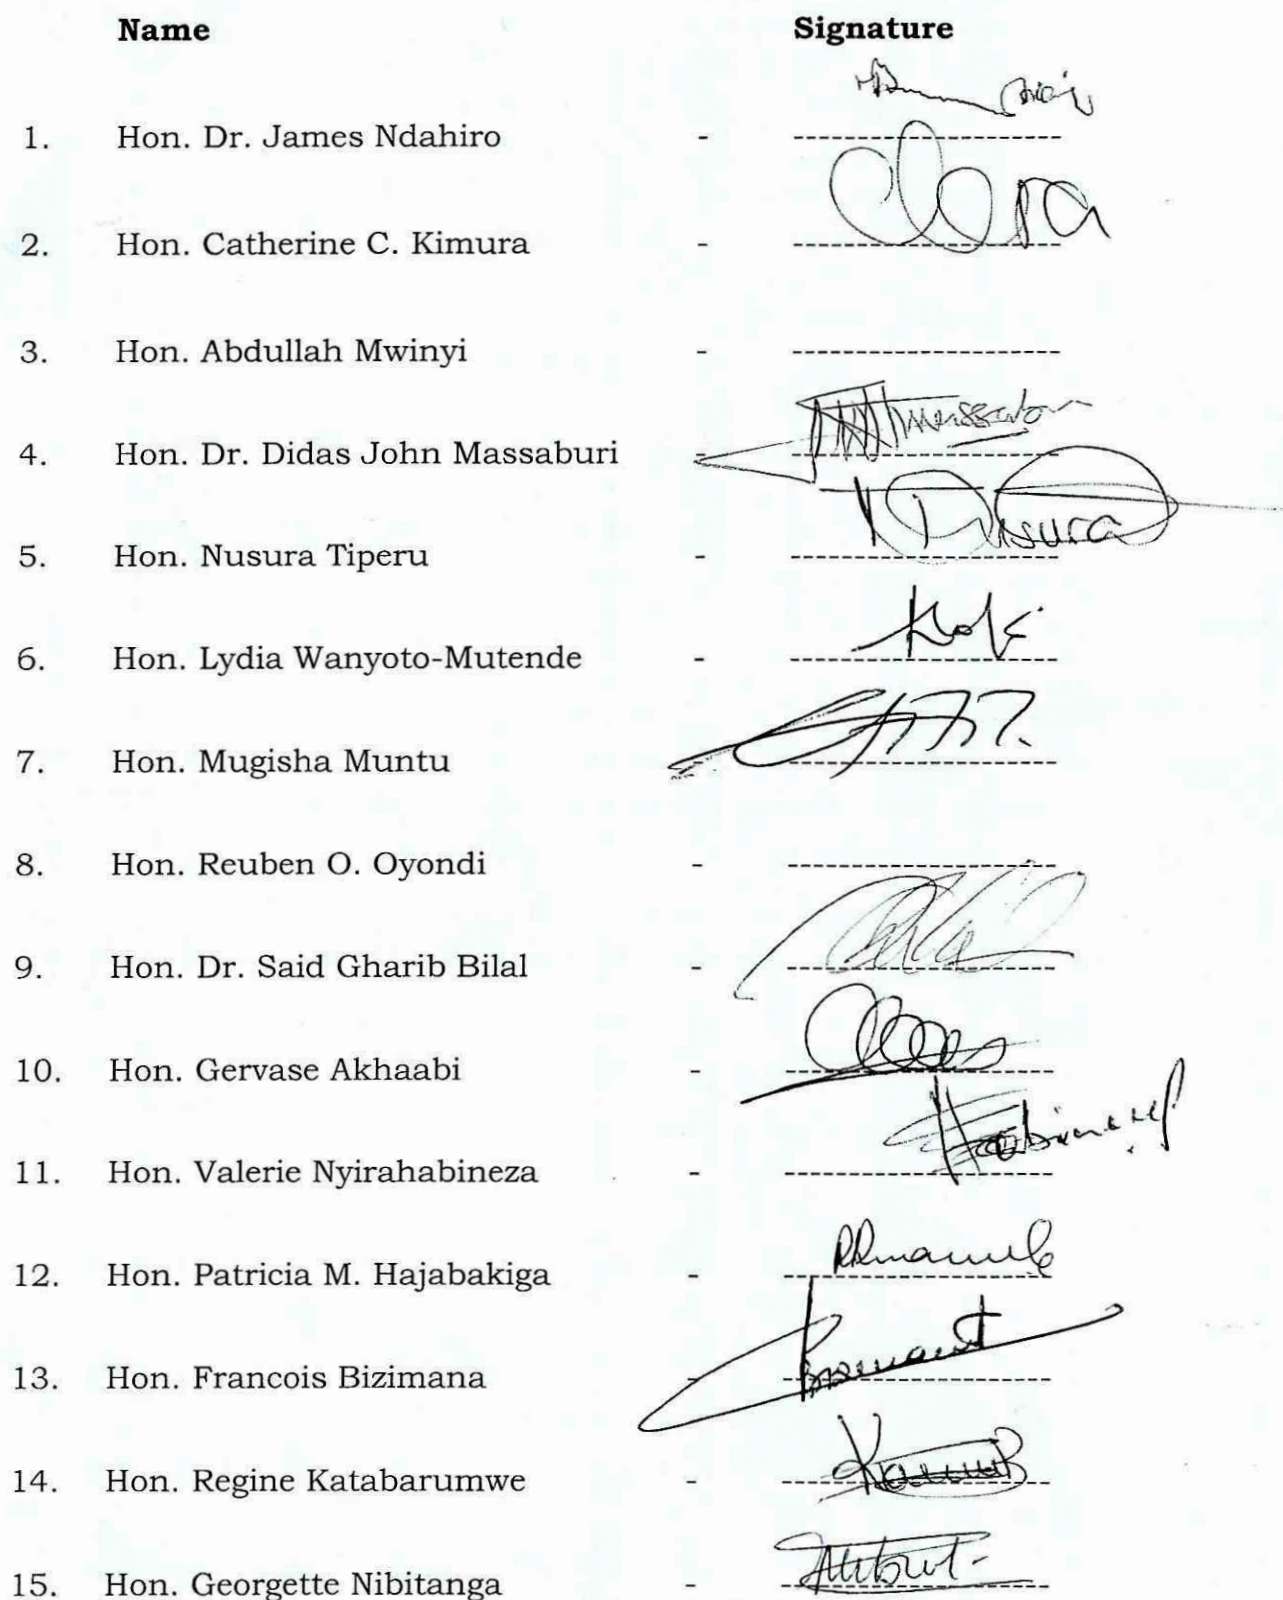 Name Signature
1. Hon. Dr. James Ndahiro -
2. Hon. Catherine C. Kimura -
3. Hon. Abdullah Mwinyi -
4. Hon. Dr. Didas John Massaburi -
5. Hon. Nusura Tiperu - Nusura
6. Hon. Lydia Wanyoto-Mutende -
7. Hon. Mugisha Muntu -
8. Hon. Reuben O. Oyondi -
9. Hon. Dr. Said Gharib Bilal -
10. Hon. Gervase Akhaabi -
11. Hon. Valerie Nyirahabineza -
12. Hon. Patricia M. Hajabakiga -
13. Hon. Francois Bizimana -
14. Hon. Regine Katabarumwe -
15. Hon. Georgette Nibitanga -